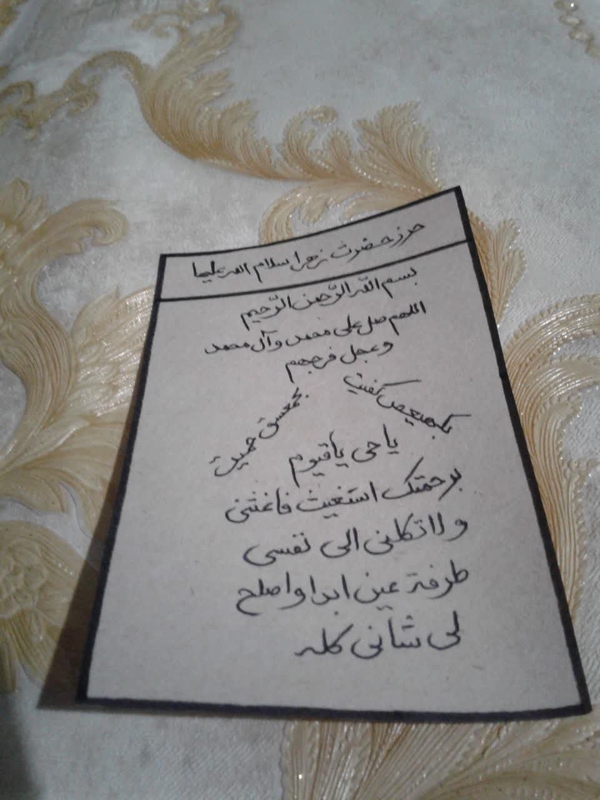 حرز حضرت زهرا سلام الله علیها
بسم الله الرّحمن الرّحیم
اللهم صل علی محمد و آل محمد
و عجل فرجهم
بکهیعص کفیت
بحمعسق حمیت
یا حی یا قیوم
برحمتک استغیث فاغثنی
ولا تکلنی الی نفسی
طرفة عین ابدا و اصلح
لی شانی کله